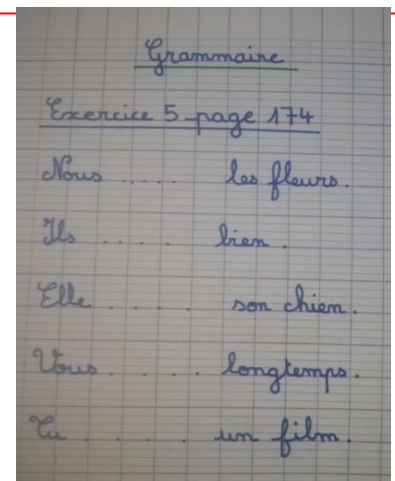 Grammaire
Exercice 5 page 174
Nous ..... les fleurs.
Ils ..... bien.
Elle ..... son chien.
Vous ..... longtemps.
Tu ..... un film.